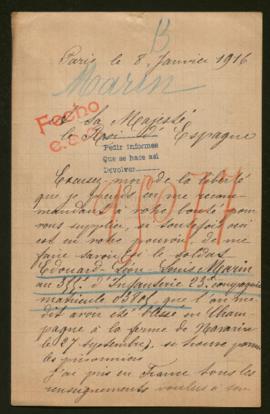 B
Paris le 8 Janvier 1916
Marin
Fecho
A Sa Majesté
le Roi d'Espagne
Pedir informes
Que se hace asi
Devolver
Excusez-moi de la liberté
que je prends en me recom-
mandant à votre bonté pour
vous supplier, si toutefois cela
est en votre pouvoir de me
faire savoir si le soldat
Edouard Léon Louis Marin
au d'Infanterie 23e compagnie
matricule que l'on me
dit avoir été blessé en Cham-
pagne à la ferme de Navarin
le 27 septembre, se trouve parmi
les prisonniers
J'ai pris en France tous les
renseignements voulus à son